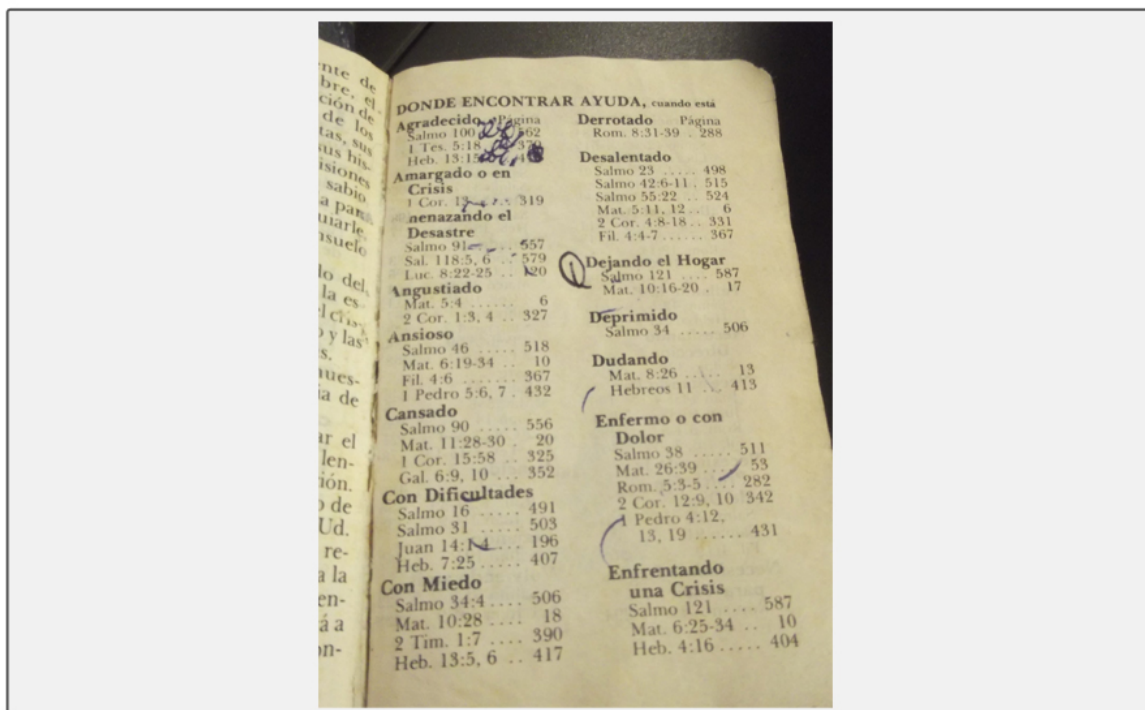 nte de
bre, el
ción de
de los
tas, sus
sus his-
isiones
sabio
a para
uiarle,
nsuelo
lo del
la es-
y las
s.
nues-
ia de
ar el
len-
ión.
o de
Ud.
re-
a la
en-
á a
on-
DONDE ENCONTRAR AYUDA, cuando está
Agradecido Página
Salmo 100 562
1 Tes. 5:18
Heb. 13:15
Amargado o en
Crisis
1 Cor. 13 .... 319
nenazando el
Desastre
Salmo 91 .... 557
Sal. 118:5, 6 .. 579
Luc. 8:22-25 .. 120
Angustiado
Mat. 5:4 ...... 6
2 Cor. 1:3, 4 .. 327
Ansioso
Salmo 46 ..... 518
Mat. 6:19-34 .. 10
Fil. 4:6 ....... 367
1 Pedro 5:6, 7 . 432
Cansado
Salmo 90 ..... 556
Mat. 11:28-30 . 20
1 Cor. 15:58 .. 325
Gal. 6:9, 10 ... 352
Con Dificultades
Salmo 16 ..... 491
Salmo 31 ..... 503
Juan 14:1-4 ... 196
Heb. 7:25 ..... 407
Con Miedo
Salmo 34:4 .... 506
Mat. 10:28 .... 18
2 Tim. 1:7 .... 390
Heb. 13:5, 6 .. 417
Derrotado Página
Rom. 8:31-39 . 288
Desalentado
Salmo 23 ..... 498
Salmo 42:6-11 . 515
Salmo 55:22 .. 524
Mat. 5:11, 12 .. 6
2 Cor. 4:8-18 .. 331
Fil. 4:4-7 ...... 367
Dejando el Hogar
Salmo 121 .... 587
Mat. 10:16-20 . 17
Deprimido
Salmo 34 ..... 506
Dudando
Mat. 8:26 ..... 13
Hebreos 11 ... 413
Enfermo o con
Dolor
Salmo 38 ..... 511
Mat. 26:39 .... 53
Rom. 5:3-5 .... 282
2 Cor. 12:9, 10 342
1 Pedro 4:12,
13, 19 ...... 431
Enfrentando
una Crisis
Salmo 121 .... 587
Mat. 6:25-34 .. 10
Heb. 4:16 ..... 404